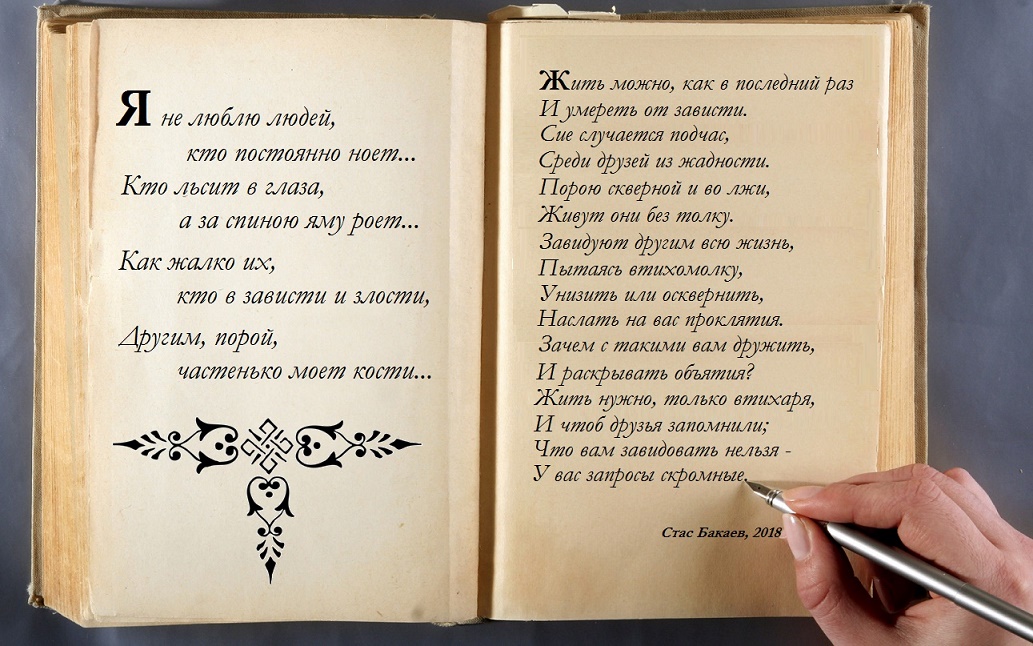 Я не люблю людей,
кто постоянно ноет...
Кто льсит в глаза,
а за спиною яму роет...
Как жалко их,
кто в зависти и злости,
Другим, порой,
частенько моет кости...
Жить можно, как в последний раз
И умереть от зависти.
Сие случается подчас,
Среди друзей из жадности.
Порою скверной и во лжи,
Живут они без толку.
Завидуют другим всю жизнь,
Пытаясь втихомолку,
Унизить или осквернить,
Наслать на вас проклятия.
Зачем с такими вам дружить,
И раскрывать объятия?
Жить нужно, только втихаря,
И чтоб друзья запомнили;
Что вам завидовать нельзя -
У вас запросы скромные.
Стас Бакаев, 2018